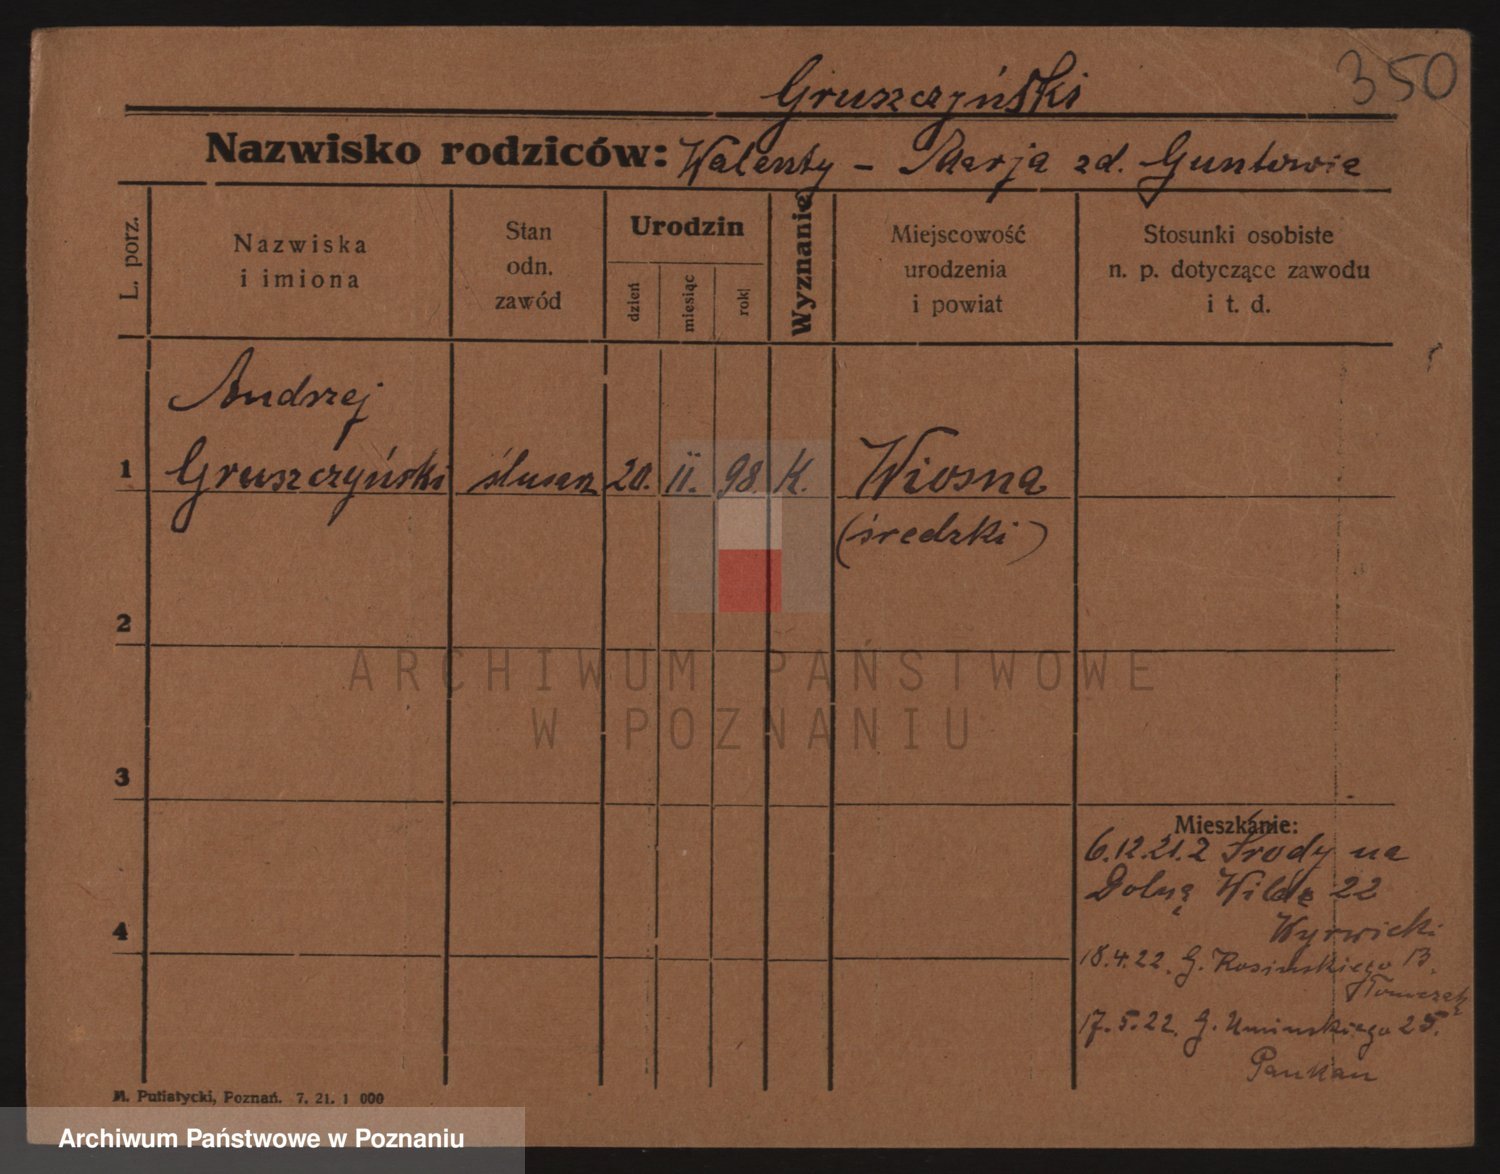 Gruszczyński
350
Nazwisko rodziców: Walenty – Marja zd. Guntowia
L. porz.
Nazwiska
i imiona
Stan
odn.
zawód
Urodzin
dzień
miesiąc
rok
Wyznanie
Miejscowość
urodzenia
i powiat
Stosunki osobiste
n. p. dotyczące zawodu
i t. d.
Andrzej
1 Gruszczyński ślusarz 20. II. 98. K. Wiosna
(średzki)
2
ARCHIWUM PAŃSTWOWE
W POZNANIU
3
Mieszkanie:
6.12.21. z Środy na
Dolną Wildę 22
4
Wyrwicki
18.4.22. G. Rosinskiego 13.
Tomczak
17.5.22. G. Uminskiego 25.
Pankau
M. Putiatycki, Poznań. 7. 21. 1 000
Archiwum Państwowe w Poznaniu